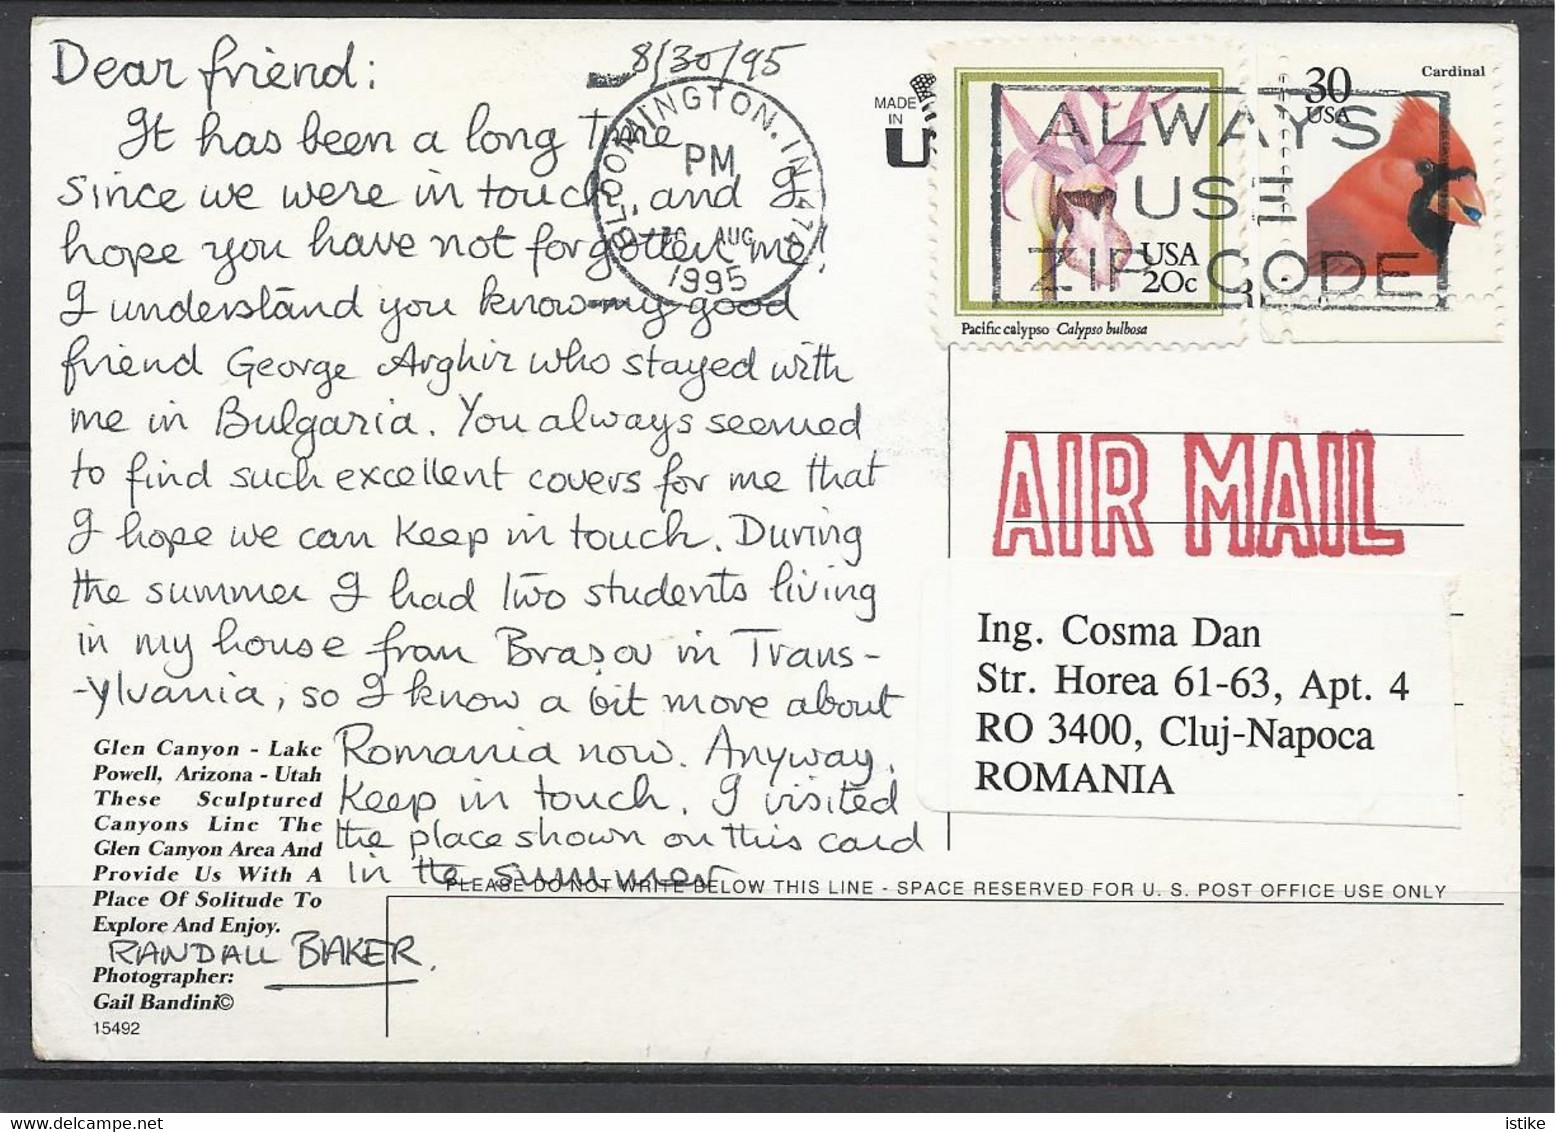 8/30/95
Dear friend:
It has been a long time
since we were in touch, and I
hope you have not forgotten me!
I understand you know my good
friend George Arghir who stayed with
me in Bulgaria. You always seemed
to find such excellent covers for me that
I hope we can keep in touch. During
the summer I had two students living
in my house from Brașov in Trans-
-ylvania, so I know a bit more about
Romania now. Anyway,
Keep in touch. I visited
the place shown on this card
in the summer
RANDALL BAKER.
Glen Canyon - Lake
Powell, Arizona - Utah
These Sculptured
Canyons Line The
Glen Canyon Area And
Provide Us With A
Place Of Solitude To
Explore And Enjoy.
Photographer:
Gail Bandini©
15492
BLOOMINGTON, IN 474
PM
AUG
1995
MADE
IN
U
ALWAYS
USE
ZIP CODE
USA
20c
Pacific calypso Calypso bulbosa
Cardinal
30
USA
AIR MAIL
Ing. Cosma Dan
Str. Horea 61-63, Apt. 4
RO 3400, Cluj-Napoca
ROMANIA
PLEASE DO NOT WRITE BELOW THIS LINE - SPACE RESERVED FOR U. S. POST OFFICE USE ONLY
istike